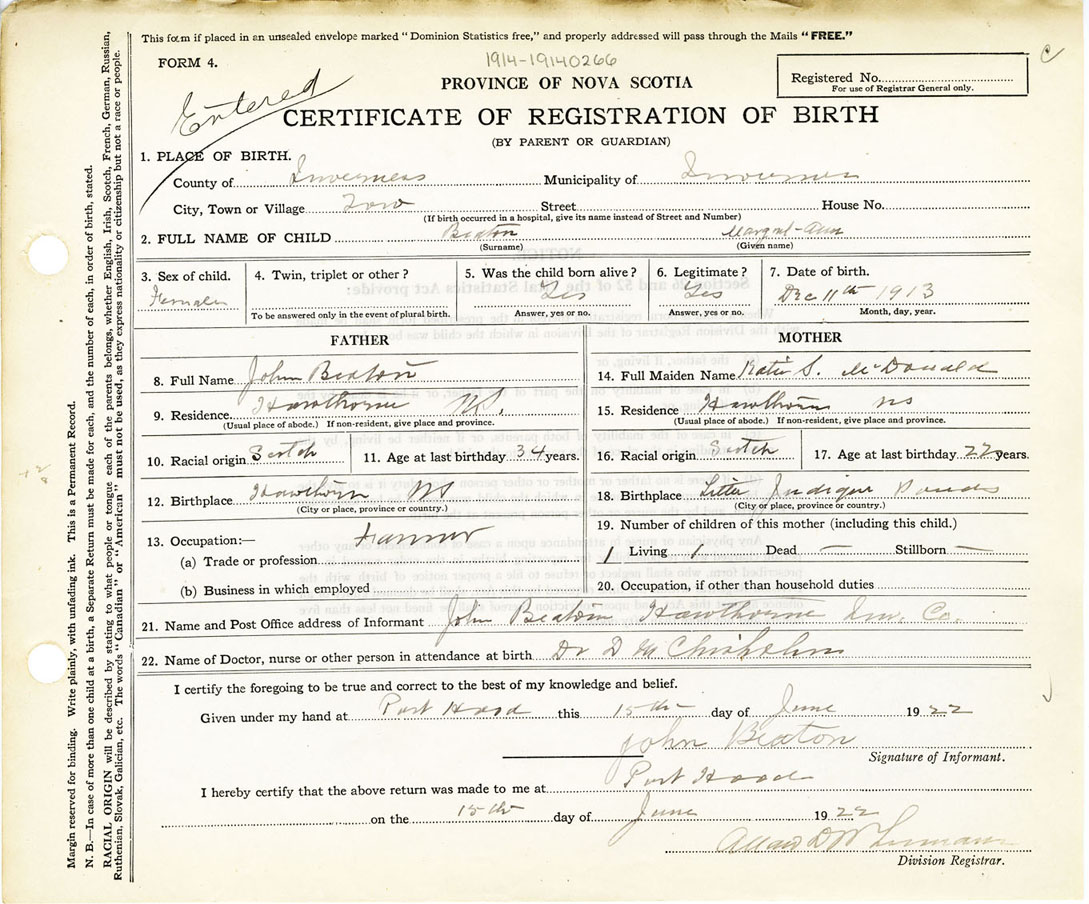 This form if placed in an unsealed envelope marked "Dominion Statistics free," and properly addressed will pass through the Mails "FREE."
FORM 4.
1914-19140266
C
Entered
PROVINCE OF NOVA SCOTIA
Registered No.
For use of Registrar General only.
CERTIFICATE OF REGISTRATION OF BIRTH
(BY PARENT OR GUARDIAN)
1. PLACE OF BIRTH.
County of Inverness Municipality of Inverness
City, Town or Village Street House No.
(If birth occurred in a hospital, give its name instead of Street and Number)
2. FULL NAME OF CHILD Beaton Margret-Ann
(Surname) (Given name)
3. Sex of child. 4. Twin, triplet or other? 5. Was the child born alive? 6. Legitimate? 7. Date of birth.
Female Yes Yes Dec 11th 1913
To be answered only in the event of plural birth. Answer, yes or no. Answer, yes or no. Month, day, year.
FATHER MOTHER
8. Full Name John Beaton 14. Full Maiden Name Katie S. McDonald
9. Residence. Hawthorne NS. 15. Residence Hawthorn NS
(Usual place of abode.) If non-resident, give place and province. (Usual place of abode.) If non-resident, give place and province.
10. Racial origin Scotch 11. Age at last birthday 34 years. 16. Racial origin Scotch 17. Age at last birthday 22 years.
12. Birthplace Hawthorn NS 18. Birthplace Little Judique Ponds
(City or place, province or country.) (City or place, province or country.)
13. Occupation:— Farmer 19. Number of children of this mother (including this child.)
(a) Trade or profession 1 Living 1 Dead — Stillborn —
(b) Business in which employed 20. Occupation, if other than household duties
21. Name and Post Office address of Informant John Beaton Hawthorne Inv. Co.
22. Name of Doctor, nurse or other person in attendance at birth Dr D M Chisholm
I certify the foregoing to be true and correct to the best of my knowledge and belief.
Given under my hand at Port Hood this 15th day of June 1922
John Beaton
Signature of Informant.
I hereby certify that the above return was made to me at Port Hood
on the 15th day of June 1922
Division Registrar.
Margin reserved for binding. Write plainly, with unfading ink. This is a Permanent Record.
N. B.—In case of more than one child at a birth, a Separate Return must be made for each, and the number of each, in order of birth, stated.
RACIAL ORIGIN will be described by stating to what people or tongue each of the parents belongs, whether English, Irish, Scotch, French, German, Russian,
Ruthenian, Slovak, Galician, etc. The words "Canadian" or "American" must not be used, as they express nationality or citizenship but not a race or people.